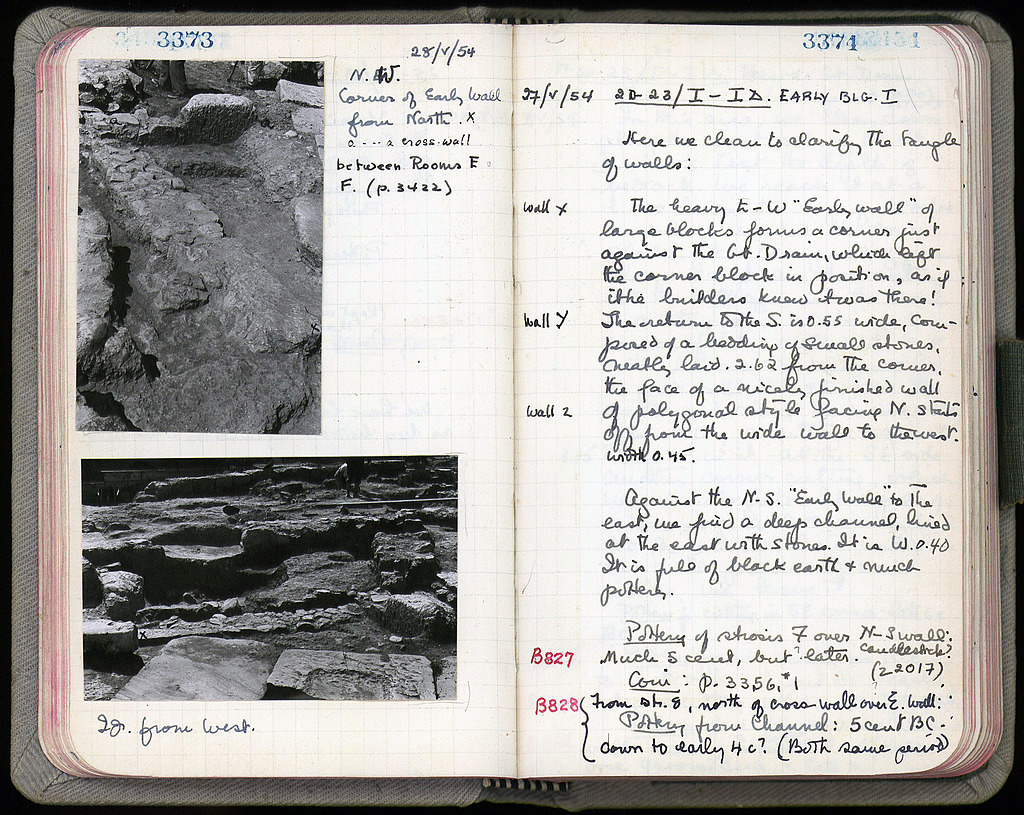 3373
28/V/54
N.W.
Corner of Early Wall
from North. x
a --- a cross-wall
between Rooms E
F. (p. 3422)
x
x
Id. from West.
3374
27/V/54 20-23/I-IΔ. EARLY BLG. I
Here we clean to clarify the tangle
of walls:
wall x The heavy E-W "Early wall" of
large blocks forms a corner just
against the Gt. Drain, which left
the corner block in position, as if
the builders knew it was there!
wall y The return to the S. is 0.55 wide, com-
posed of a bedding of small stones,
neatly laid. 2.62 from the corner,
the face of a nicely finished wall
wall z of polygonal style facing N. starts
off from the wide wall to the west.
width 0.45.
Against the N-S. "Early wall" to the
east, we find a deep channel, lined
at the east with stones. It is W. 0.40
It is full of black earth & much
pottery.
Pottery of strosis 7 over N-S wall:
B827 Much 5 cent, but later. candlestick?
(L2017)
Coin: p. 3356, #1
B828 From str. 8, north of cross-wall over E. wall:
Pottery from Channel: 5 cent BC -
down to early 4 c? (Both same period)